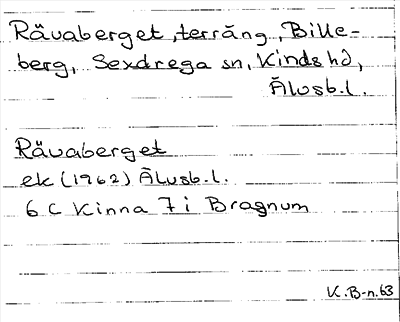 Rävaberget, terräng, Bille-
berg, Sexdrega sn, Kinds hd,
Älvsb.l.
Rävaberget
ek (1962) Älvsb.l.
6 C Kinna 7 i Bragnum
K.B-n. 63